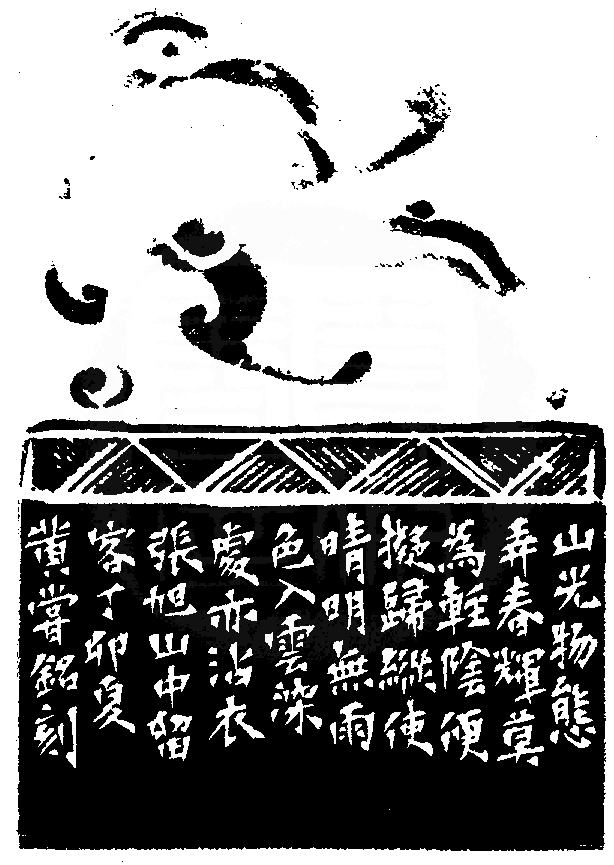 山光物態
弄春輝莫
為輕陰便
擬歸縱使
晴明無雨
色入雲深
處亦沾衣
張旭山中留
客丁卯夏
黄嘗銘刻